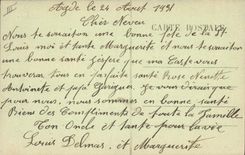 Agde le 24 Août 1931
CARTE POSTALE
Cher Neveu
Nous te souaiton une bonne fete de la St
Louis moi et tante Marguerite et nous te souaiton
une bonne santé j'espère que ma carte vous
trouveras tous en parfaite santé Rose Ninette
Antoinette et papa Garigues. Je vous dirais que
pour nous, nous sommes en bonne santé
Bien des Compliments de toute la famille
Ton Oncle et tante pour la vie
Louis Delmas, et Marguerite